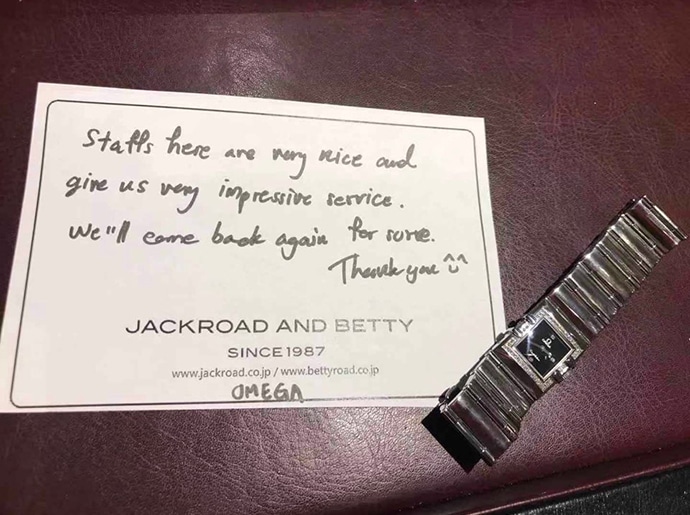 Staffs here are very nice and
give us very impressive service.
We"ll come back again for sure.
Thank you ^u^
JACKROAD AND BETTY
SINCE 1987
www.jackroad.co.jp / www.bettyroad.co.jp
OMEGA